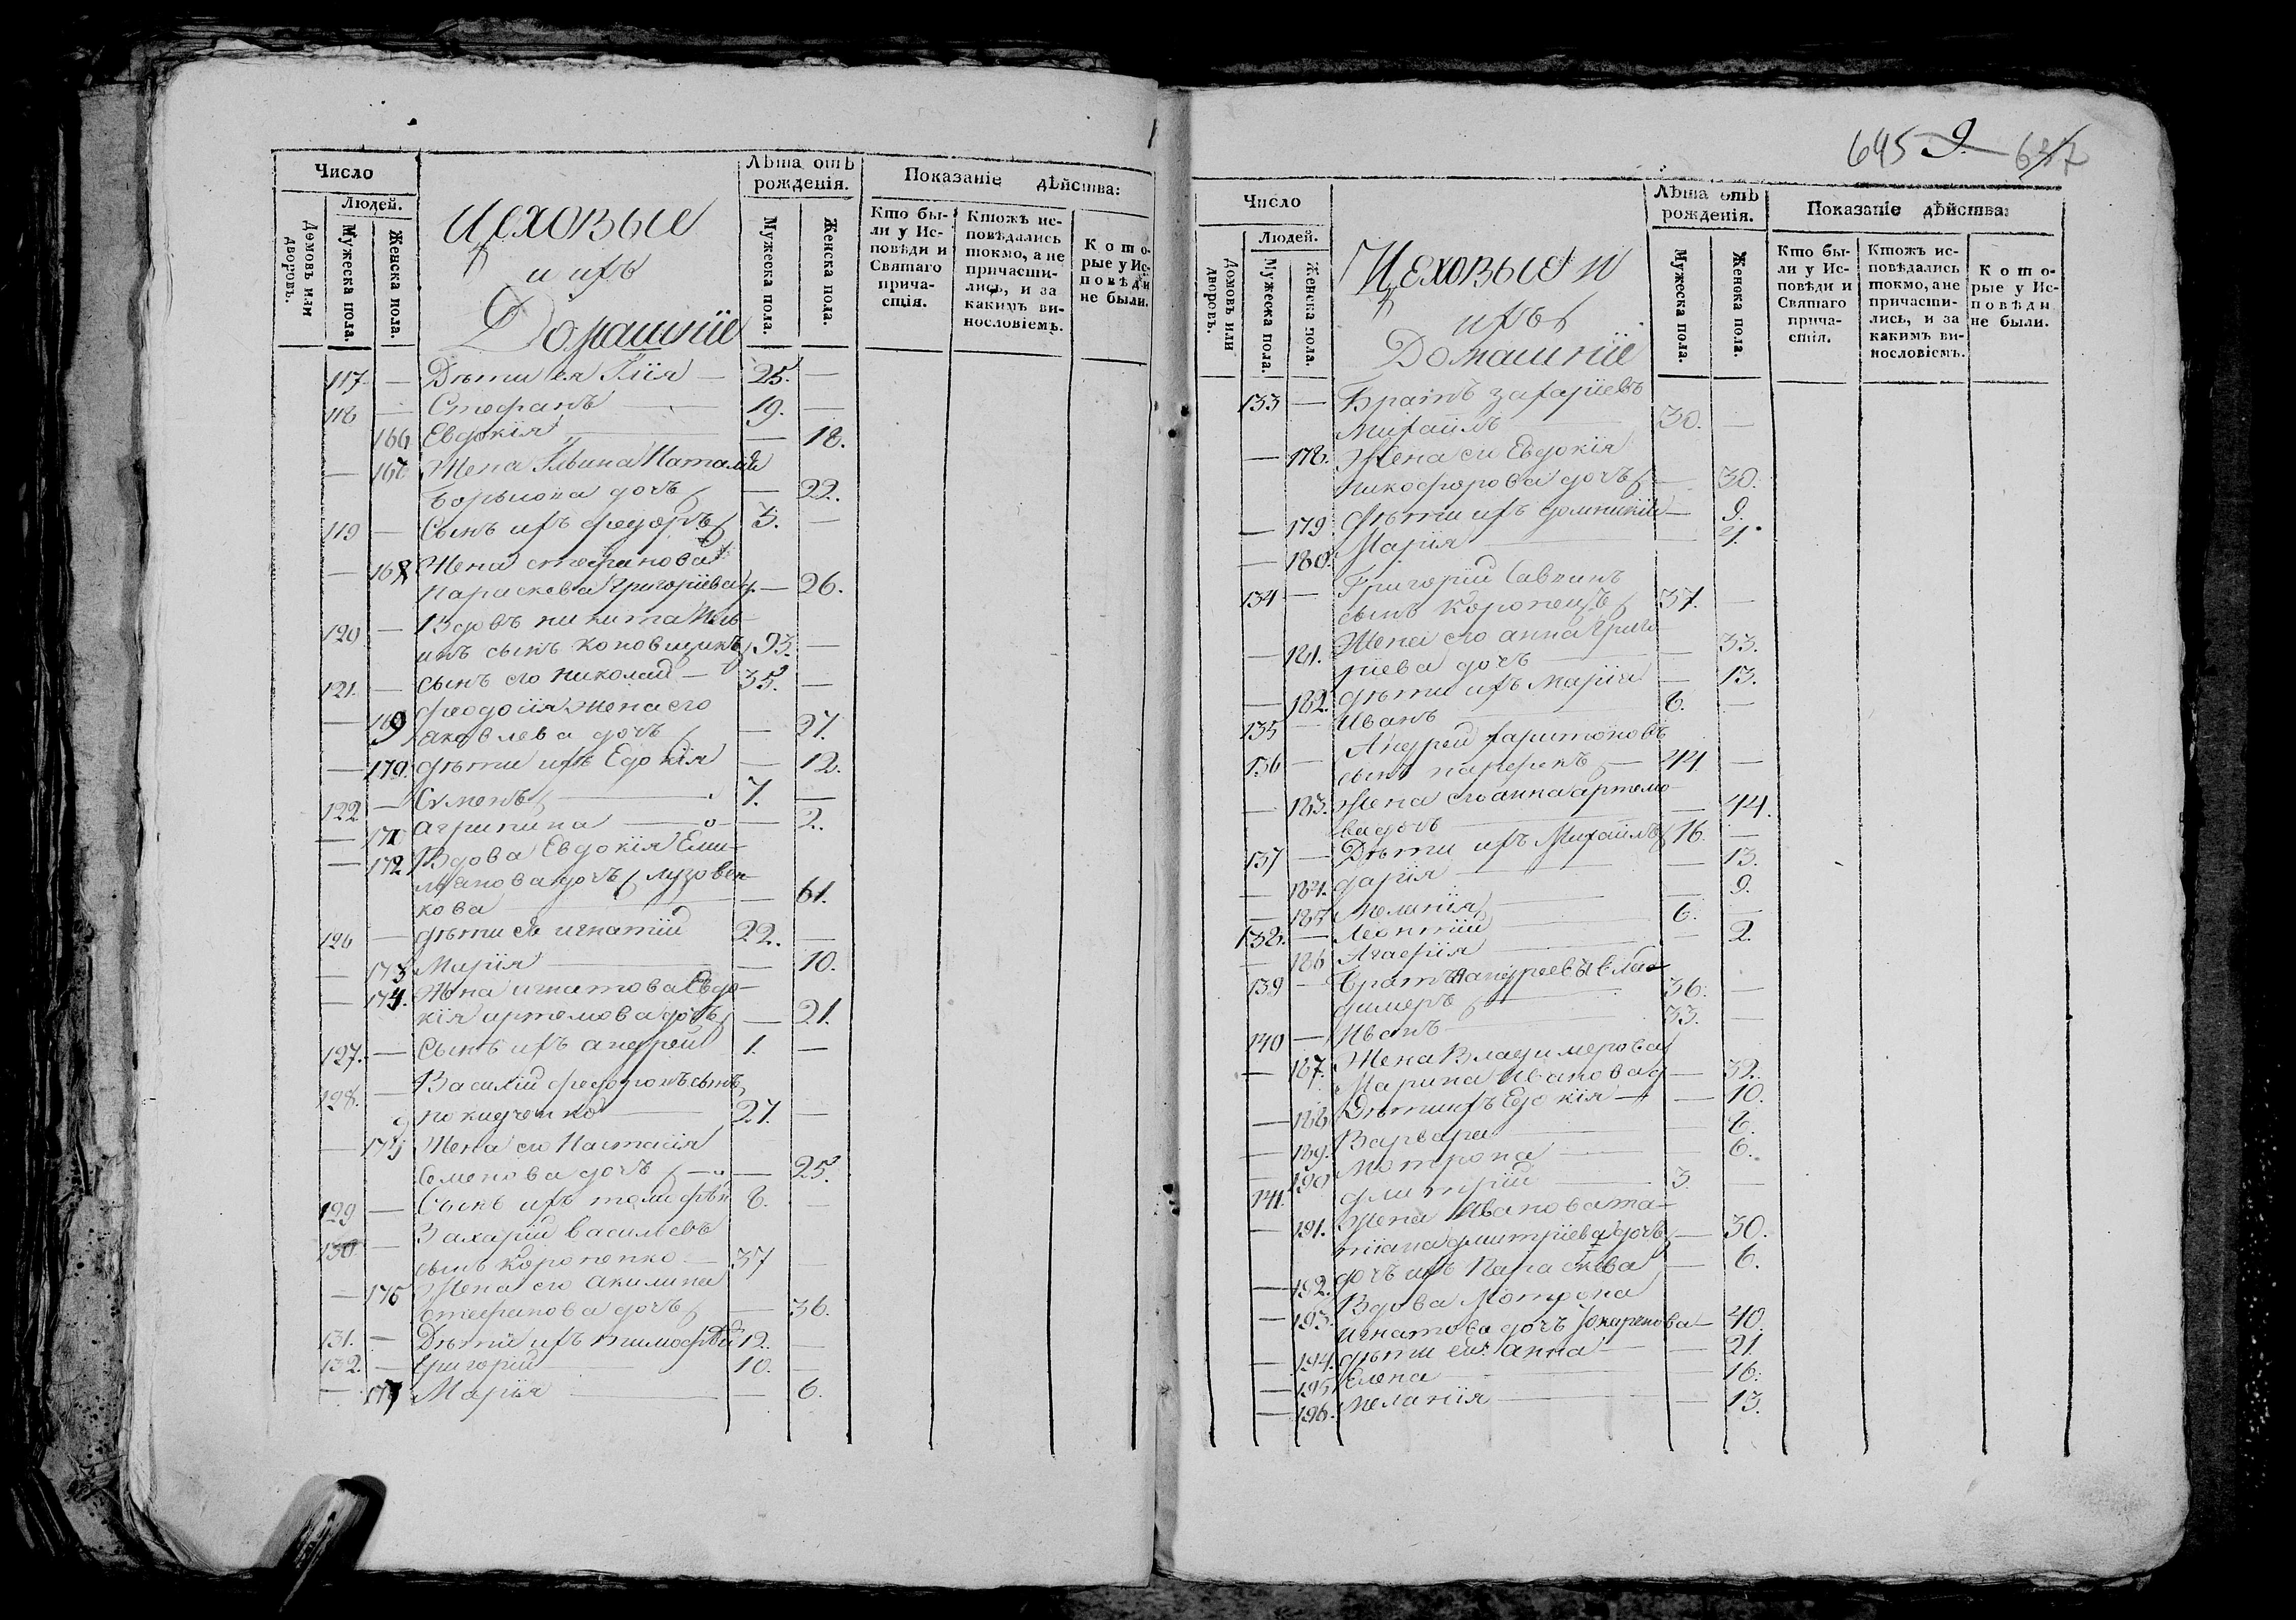 Число
Людей.
Домовъ или дворовъ.
Мужеска пола.
Женска пола.
Цеховые
и ихъ
Домашніе
Лѣта отъ рожденія.
Мужеска пола.
Женска пола.
Показаніе дѣйства:
Кто бы-
ли у Ис-
повѣди и
Святаго
прича-
стія.
Ктожъ ис-
повѣдались
токмо, а не
причасти-
лись, и за
какимъ ви-
нословіемъ.
Кото-
рые у Ис-
повѣди
не были.
117 — Дѣти ея Илія — 25. —
118 — Стефанъ 19. —
166 Евдокія — 18.
— 167 Жена Ильина Наталія
дочь — 22.
119 — Сынъ ихъ Федоръ 3. —
— 168 Жена стефанова
Параскева Григоріева д. — 26.
120 — Вдовъ никита
инъ сынъ коновщикъ 93. —
121. — Сынъ его Николай — 35. —
— 169 Феодосія Жена его
яковлева дочь — 27.
— 170. дѣти ихъ Едокія — 12.
122 — Сѵменъ 7. —
— 171 агрипина — 2.
— 172 Вдова Евдокія Еми-
льянова дочь
кова — 61.
126 — дѣти ея игнатій 22. —
— 173 Марія — 10.
— 174. Жена игнатова Евдо-
кія артемова дочь — 21.
127. — Сынъ ихъ андрей 1. —
128. — Василій федоровъ сынъ
27. —
— 175 Жена его Настасія
Семенова дочь — 25.
129 — Сынъ ихъ тимофѣй 6. —
130 — Захарій василіевъ
сынъ Коропенко — 37 —
— 176 Жена его Акилина
Стефанова дочь — 36.
131. — Дѣти ихъ тимофѣй 12. —
132. — Григорій 10.
— 177 Марія — 6.
645 9. 637
Число
Людей.
Домовъ или дворовъ.
Мужеска пола.
Женска пола.
Цеховые и
ихъ
Домашніе
Лѣта отъ рожденія.
Мужеска пола.
Женска пола.
Показаніе дѣйства:
Кто бы-
ли у Ис-
повѣди и
Святаго
прича-
стія.
Ктожъ ис-
повѣдались
токмо, а не
причасти-
лись, и за
какимъ ви-
нословіемъ.
Кото-
рые у Ис-
повѣди
не были.
133 — Братъ захаріевъ
Михаилъ 30. —
— 178. Жена его Евдокія
никофорова дочь — 30.
— 179 Дѣти ихъ домникія — 9.
— 180. Марія — 4.
134 — Григорій Саввинъ
сынъ Коропецъ 37. —
— 181. Жена его анна Григо
ріева дочь — 33.
— 182. дѣти ихъ Марія — 13.
135 — Иванъ 6. —
136 — Андрей харитоновъ
сынъ 44 —
— 183. Жена его анна артемо
ва дочь — 44.
137 — Дѣти ихъ Михаилъ 16. —
— 184. Дарія — 13.
— 185 Меланія — 9.
138. — Леонтій 6. —
— 186 Агафія — 2.
139 — Братъ андреевъ вла-
димеръ 36. —
140 — Иванъ 33. —
— 187. Жена Владимерова
Марина Иванова д — 32.
— 188. Дѣти ихъ Едокія — 10.
— 189. Варвара — 8.
— 190 Мотрона — 6.
141. дмитрій 3. —
— 191. Жена Иванова та-
тіана дмитріева дочь — 30.
— 192. дочь ихъ Параскева — 6.
— 193. Вдова Мотрона
игнатова дочь — 40.
— 194. дѣти ея анна — 21.
— 195. Елена 16.
— 196. меланія — 13.